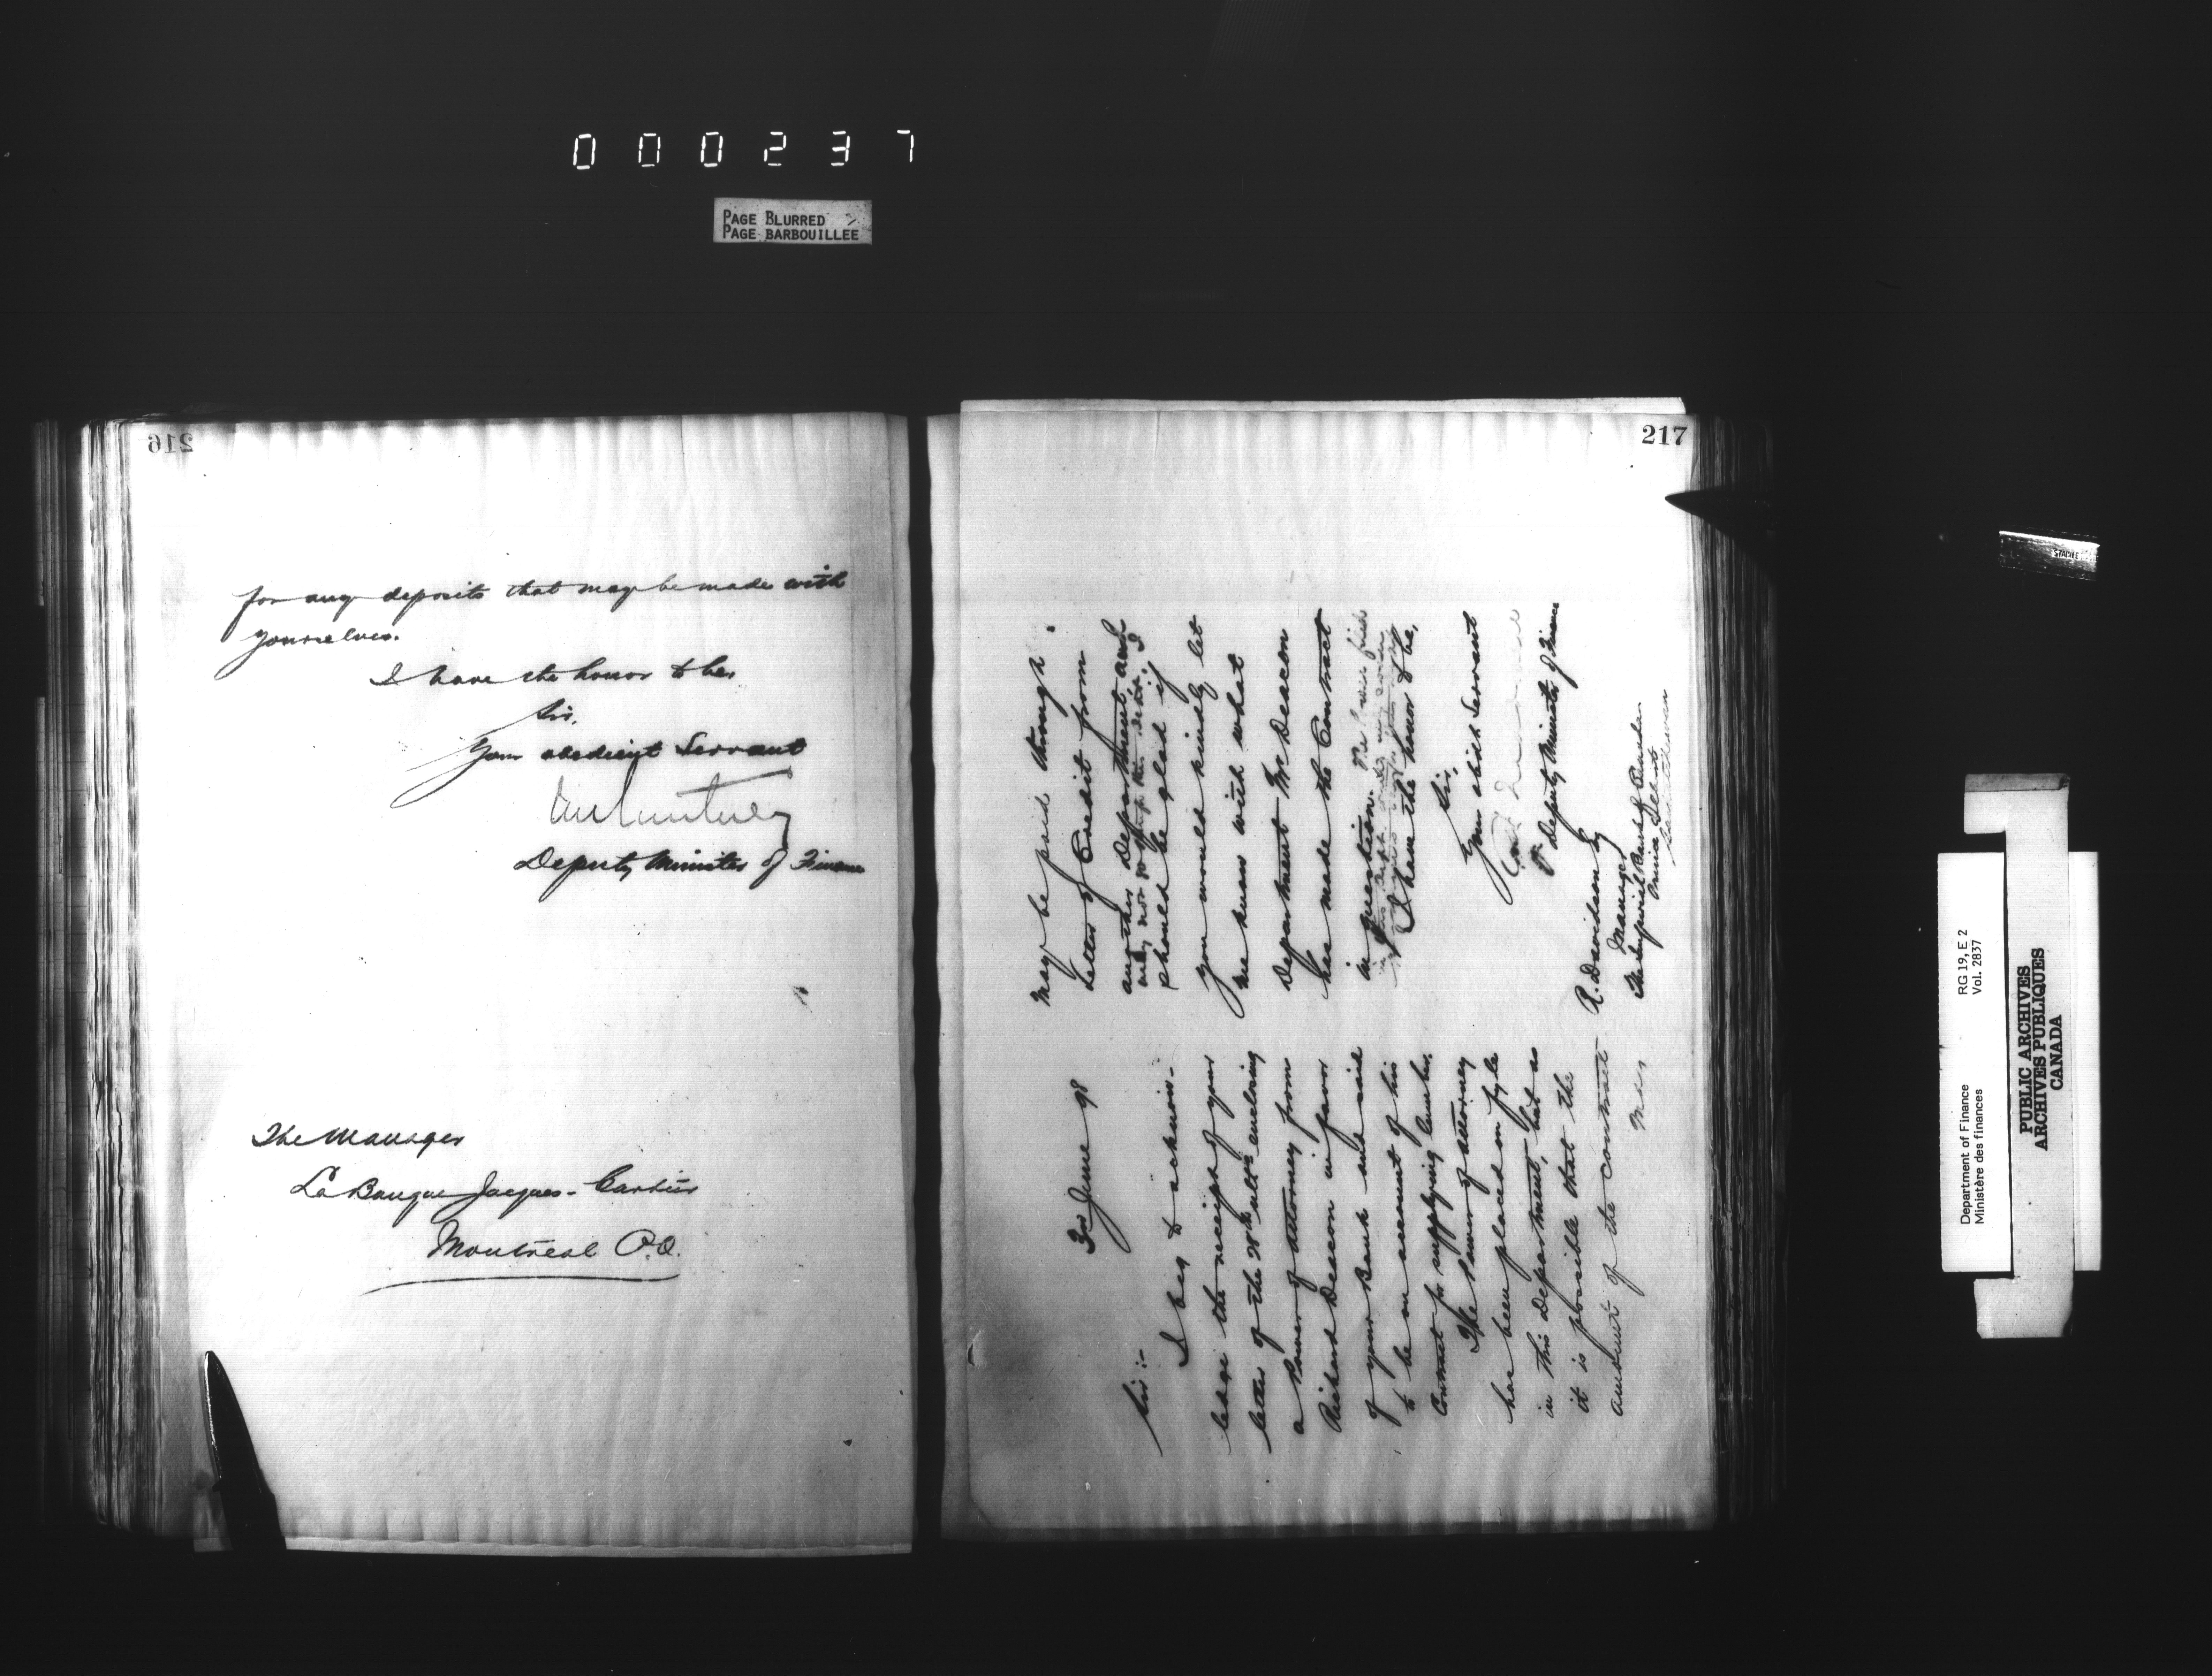 000237
PAGE BLURRED
PAGE BARBOUILLEE
216
for any deposits that may be made with
yourselves.
I have the honor to be,
Sir,
Your obedient Servant
Deputy Minister of Finance
The Manager
La Banque Jacques-Cartier
Montreal P.Q.
217
3rd June 98
Sir:-
I beg to acknow-
ledge the receipt of your
letter of the 28th ulto enclosing
a Power of Attorney from
Richard Deacon in favor
of your Bank and said
to be on account of his
Contract for supplying lumber.
The Power of Attorney
has been placed on fyle
in this Department, but as
it is possible that the
amount of the contract
may be paid through
Letter of Credit from
another Department and
may not go through this Dept. I
should be glad if
you would kindly let
me know with what
Department Mr Deacon
has made the Contract
in question.
I have the honor to be,
Sir,
Your obedt Servant
Deputy Minister of Finance
R. Davidson
Manager
The Imperial Bank of Canada
Prince Albert
Saskatchewan
STAPLES
Department of Finance
Ministère des finances
RG 19, E 2
Vol. 2837
PUBLIC ARCHIVES
ARCHIVES PUBLIQUES
CANADA